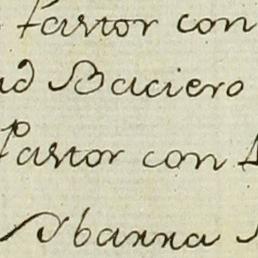 Pastor con
Baciero
Pastor con
Ybarra